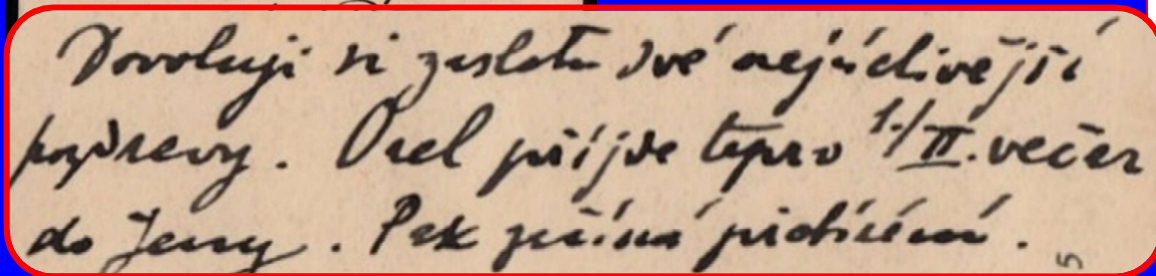 Dovoluji si zaslati své nejúctivější
pozdravy. Orel přijde teprv 1./II. večer
do Jeny. Pak začíná
5